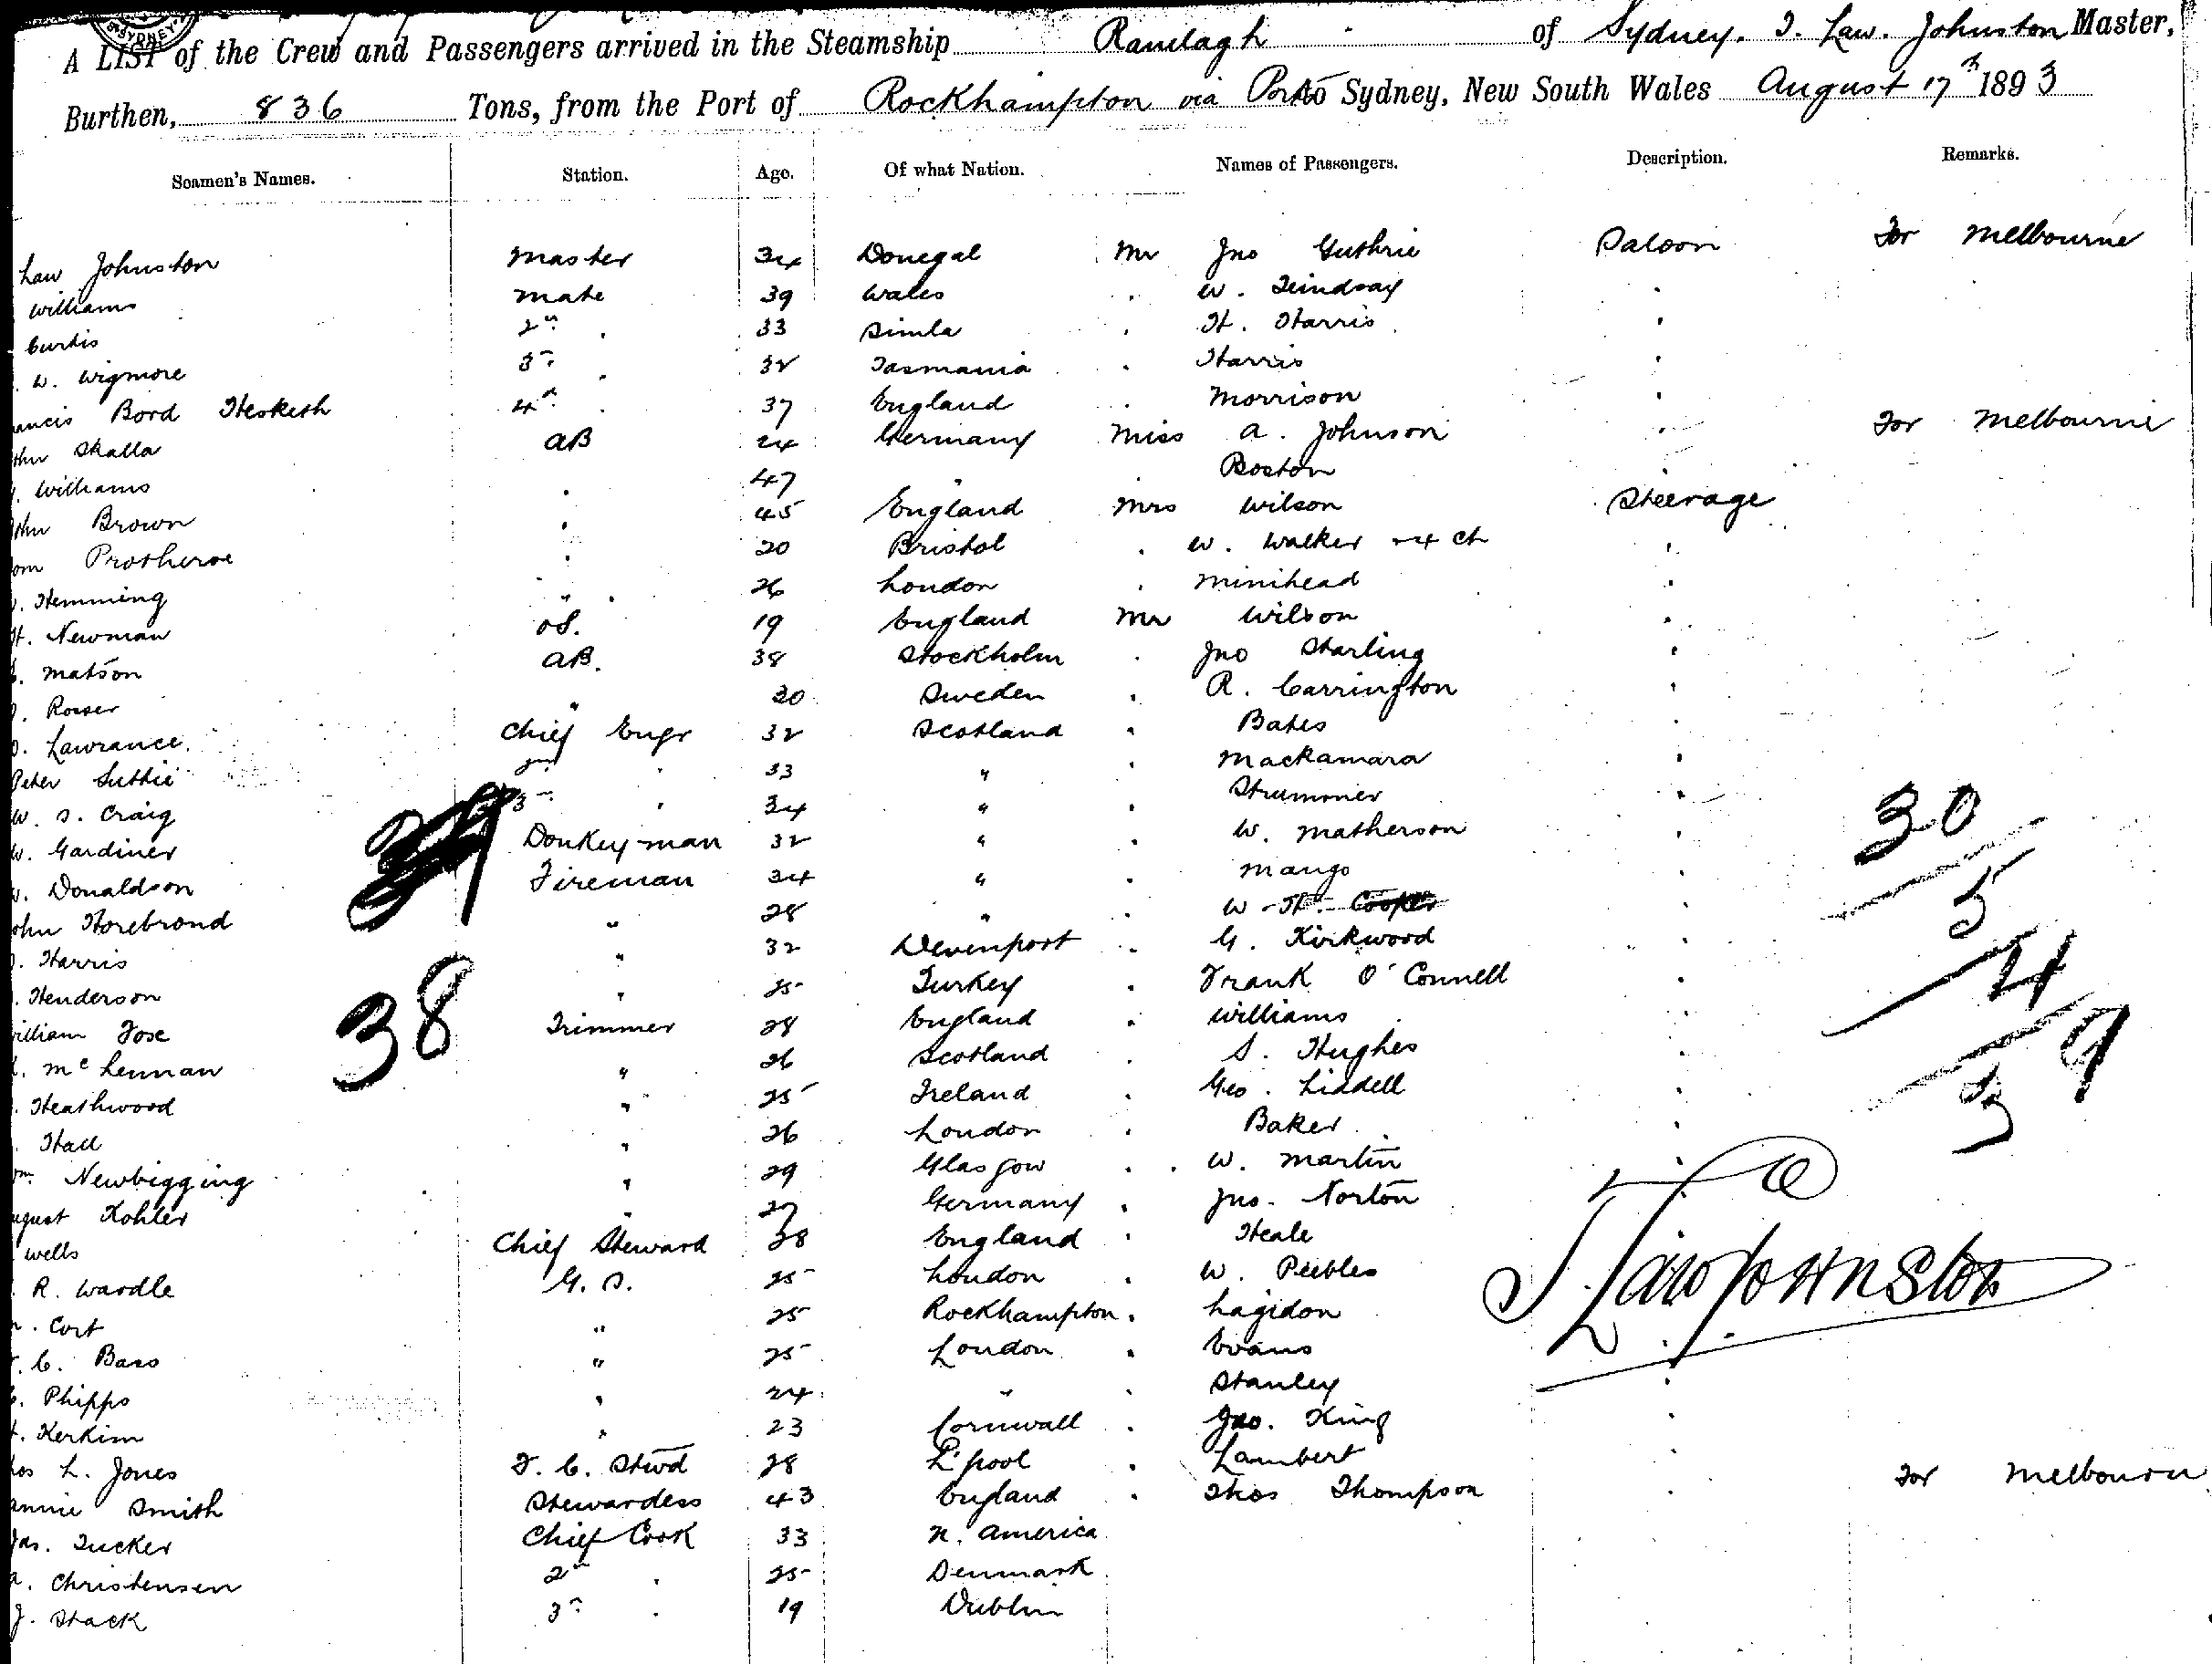 SYDNEY
A LIST of the Crew and Passengers arrived in the Steamship Ranelagh of Sydney. J. Law. Johnston Master,
Burthen, 836 Tons, from the Port of Rockhampton via Ports to Sydney, New South Wales August 17th 1893
Seamen's Names. Station. Age. Of what Nation. Names of Passengers. Description. Remarks.
Law Johnston Master 34 Donegal Mr Jno Guthrie Saloon For Melbourne
Williams Mate 39 Wales " W. Lindsay "
Curtis 2nd " 33 Simla " H. Harris "
W. Wigmore 3rd " 32 Tasmania " Harris "
ancis Bord Hesketh 4th " 37 England " Morrison "
ohn Skalla AB 24 Germany Miss A. Johnson " For Melbourne
. Williams " 47 " " Boston "
ohn Brown " 45 England Mrs Wilson Steerage
om Protheroe " 20 Bristol " W. Walker & 4 ch "
. Hemming " 26 London " Minihead "
H. Newman OS. 19 England Mr Wilson "
. Matson AB. 38 Stockholm " Jno Starling "
. Rosser " 30 Sweden " R. Carrington "
. Lawrance. Chief Engr 32 Scotland " Bates "
Peter Suttie 2nd " 33 " " Mackamara "
W. S. Craig 3rd " 34 " " Strummer "
W. Gardiner Donkeyman 32 " " W. Matherson "
. Donaldson Fireman 34 " " Mango "
ohn Horebrond " 28 " " W. H. Cooper "
. Harris " 32 Devenport " G. Kirkwood "
. Henderson " 25 Turkey " Frank O'Connell "
illiam Fose Trimmer 28 England " Williams "
. McLennan " 26 Scotland " S. Hughes "
. Heathwood " 25 Ireland " Geo. Liddell "
. Hall " 26 London " Baker "
m. Newbigging " 29 Glasgow " W. Martin "
ugust Kohler " 27 Germany " Jno. Norton "
Wells Chief Steward 38 England " Heale "
R. Wardle G.S. 25 London " W. Peebles "
. Cort " 25 Rockhampton " Lagidon "
. C. Bass " 25 London " Evans "
. Phipps " 24 " " Stanley "
. Kerkim " 23 Cornwall " Jno. King "
os L. Jones F.C. Stwd 28 L'pool " Lambert "
annie Smith Stewardess 43 England " Thos Thompson " For Melbourn
Jas. Tucker Chief Cook 33 N. America
A. Christensen 2nd " 25 Denmark
J. Stack 3rd " 19 Dublin
38
30
5
4
39
J Law Johnston